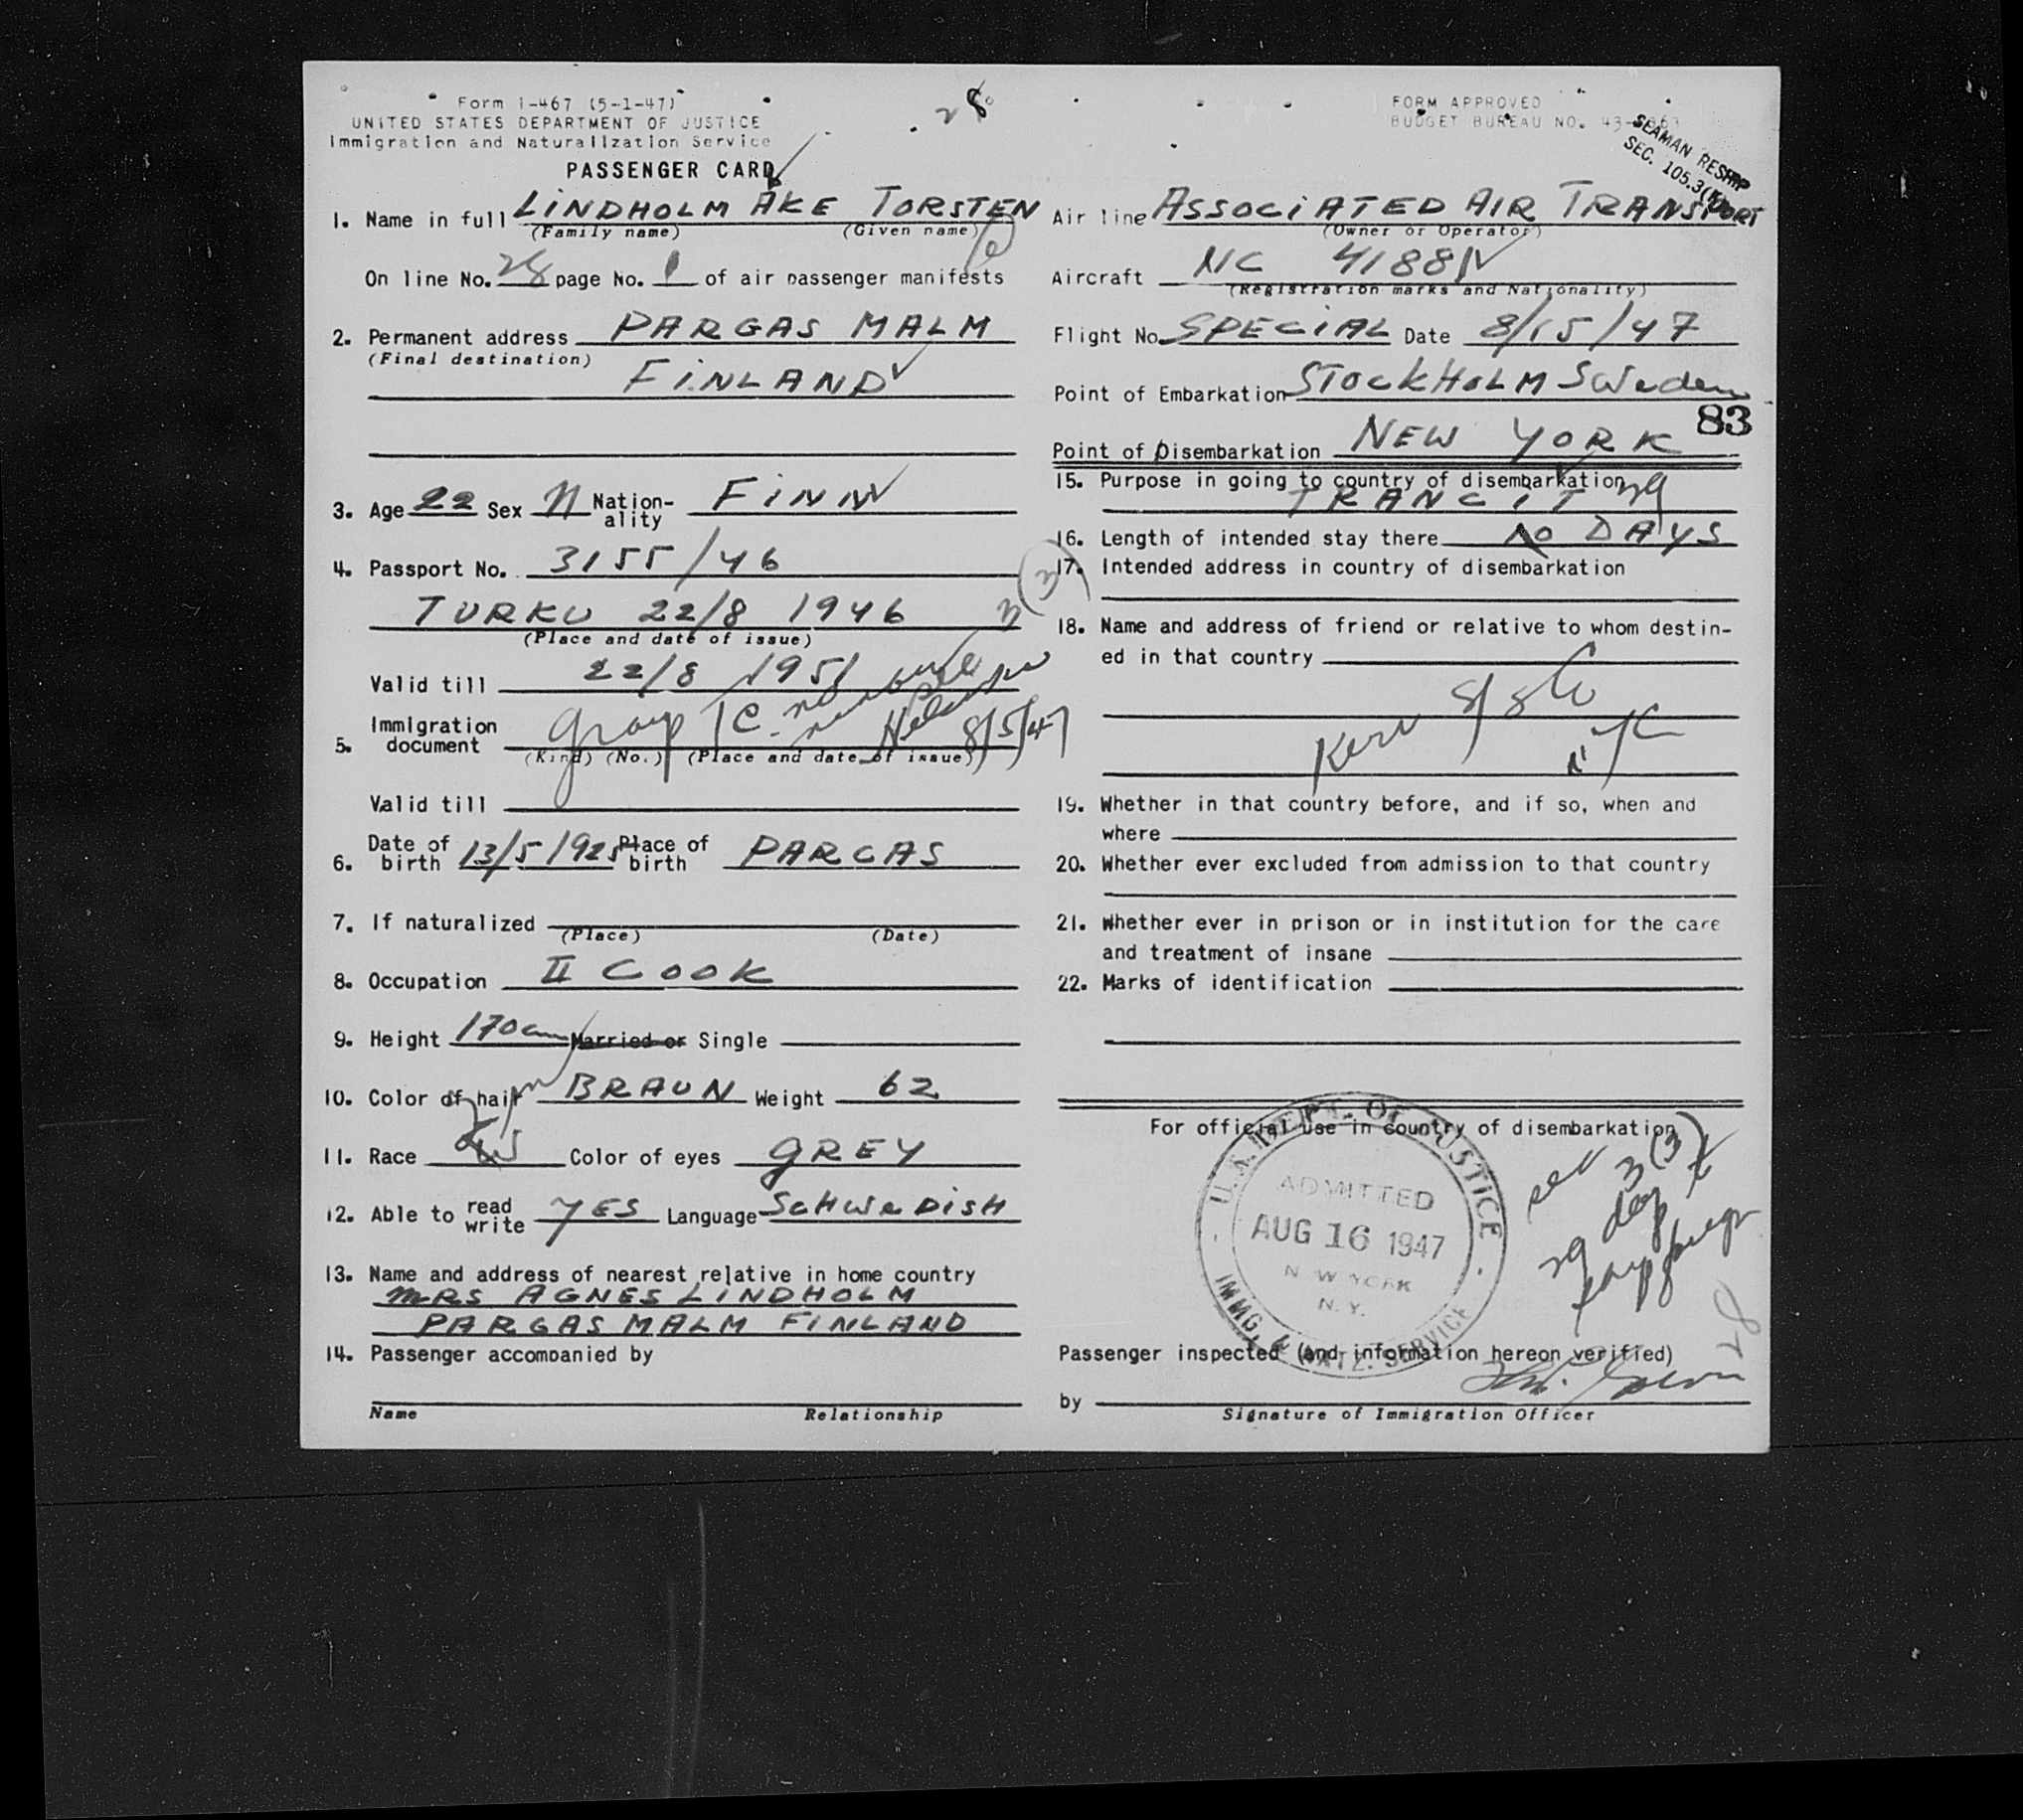 28
Form I-467 (5-1-47)
UNITED STATES DEPARTMENT OF JUSTICE
Immigration and Naturalization Service
PASSENGER CARD
FORM APPROVED
BUDGET BUREAU NO. 43-
SEAMAN RESHIP
SEC. 105.3
1. Name in full LINDHOLM ÅKE TORSTEN
(Family name) (Given name)
On line No. 28 page No. 1 of air passenger manifests
2. Permanent address PARGAS MALM
(Final destination)
FINLAND
3. Age 22 Sex M Nation-ality FINN
4. Passport No. 3155/46
TURKU 22/8 1946
(Place and date of issue)
3(3)
Valid till 22/8 1951
5. Immigration document Group TC no number Helsinki 8/5/47
(Kind) (No.) (Place and date of issue)
Valid till
6. Date of birth 13/5/1925 Place of birth PARGAS
7. If naturalized
(Place) (Date)
8. Occupation II COOK
9. Height 170 cm Married or Single
10. Color of hair BRAUN Weight 62
11. Race Color of eyes GREY
12. Able to read write YES Language SCHWEDISH
13. Name and address of nearest relative in home country
MRS AGNES LINDHOLM
PARGAS MALM FINLAND
14. Passenger accompanied by
Name Relationship
Air line ASSOCIATED AIR TRANSPORT
(Owner or Operator)
Aircraft NC 41881
(Registration marks and Nationality)
Flight No. SPECIAL Date 8/15/47
Point of Embarkation STOCKHOLM Sweden
83
Point of Disembarkation NEW YORK
15. Purpose in going to country of disembarkation
TRANCIT 29
16. Length of intended stay there DAYS
17. Intended address in country of disembarkation
18. Name and address of friend or relative to whom destin-
ed in that country
Kerr S/S Co
NYC
19. Whether in that country before, and if so, when and
where
20. Whether ever excluded from admission to that country
21. Whether ever in prison or in institution for the care
and treatment of insane
22. Marks of identification
For official use in country of disembarkation
U.S. DEPT. OF JUSTICE
ADMITTED
AUG 16 1947
NEW YORK
N. Y.
IMMG. & NATZ. SERVICE
sec 3(3)
29 day
Passenger inspected (and information hereon verified)
by
Signature of Immigration Officer